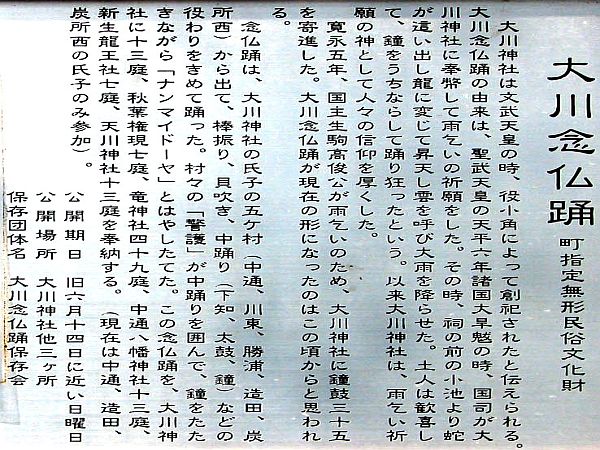 大川念仏踊 町指定無形民俗文化財
大川神社は文武天皇の時、役小角によって創祀されたと伝えられる。
大川念仏踊の由来は、聖武天皇の天平六年諸国大旱魃の時、国司が大
川神社に奉幣して雨乞いの祈願をした。その時、祠の前の小池より蛇
が這い出し龍に変じて昇天し雲を呼び大雨を降らせた。土人は歓喜し
て、鐘をうちならして踊り狂ったという。以来大川神社は、雨乞い祈
願の神として人々の信仰を厚くした。
寛永五年、国主生駒高俊公が雨乞いのため、大川神社に鐘鼓三十五
を寄進した。大川念仏踊が現在の形になったのはこの頃からと思われ
る。
念仏踊は、大川神社の氏子の五ケ村（中通、川東、勝浦、造田、炭
所西）から出て、棒振り、貝吹き、中踊り（下知、太鼓、鐘）などの
役わりをきめて踊った。村々の「警護」が中踊りを囲んで、鐘をたた
きながら「ナンマイドーヤ」とはやしたてた。この念仏踊を、大川神
社に十三庭、秋葉権現七庭、竜神社四十九庭、中通八幡神社十三庭、
新生龍王社七庭、天川神社十三庭を奉納する。（現在は中通、造田、
炭所西の氏子のみ参加）。
公開期日 旧六月十四日に近い日曜日
公開場所 大川神社他三ヶ所
保存団体名 大川念仏踊保存会